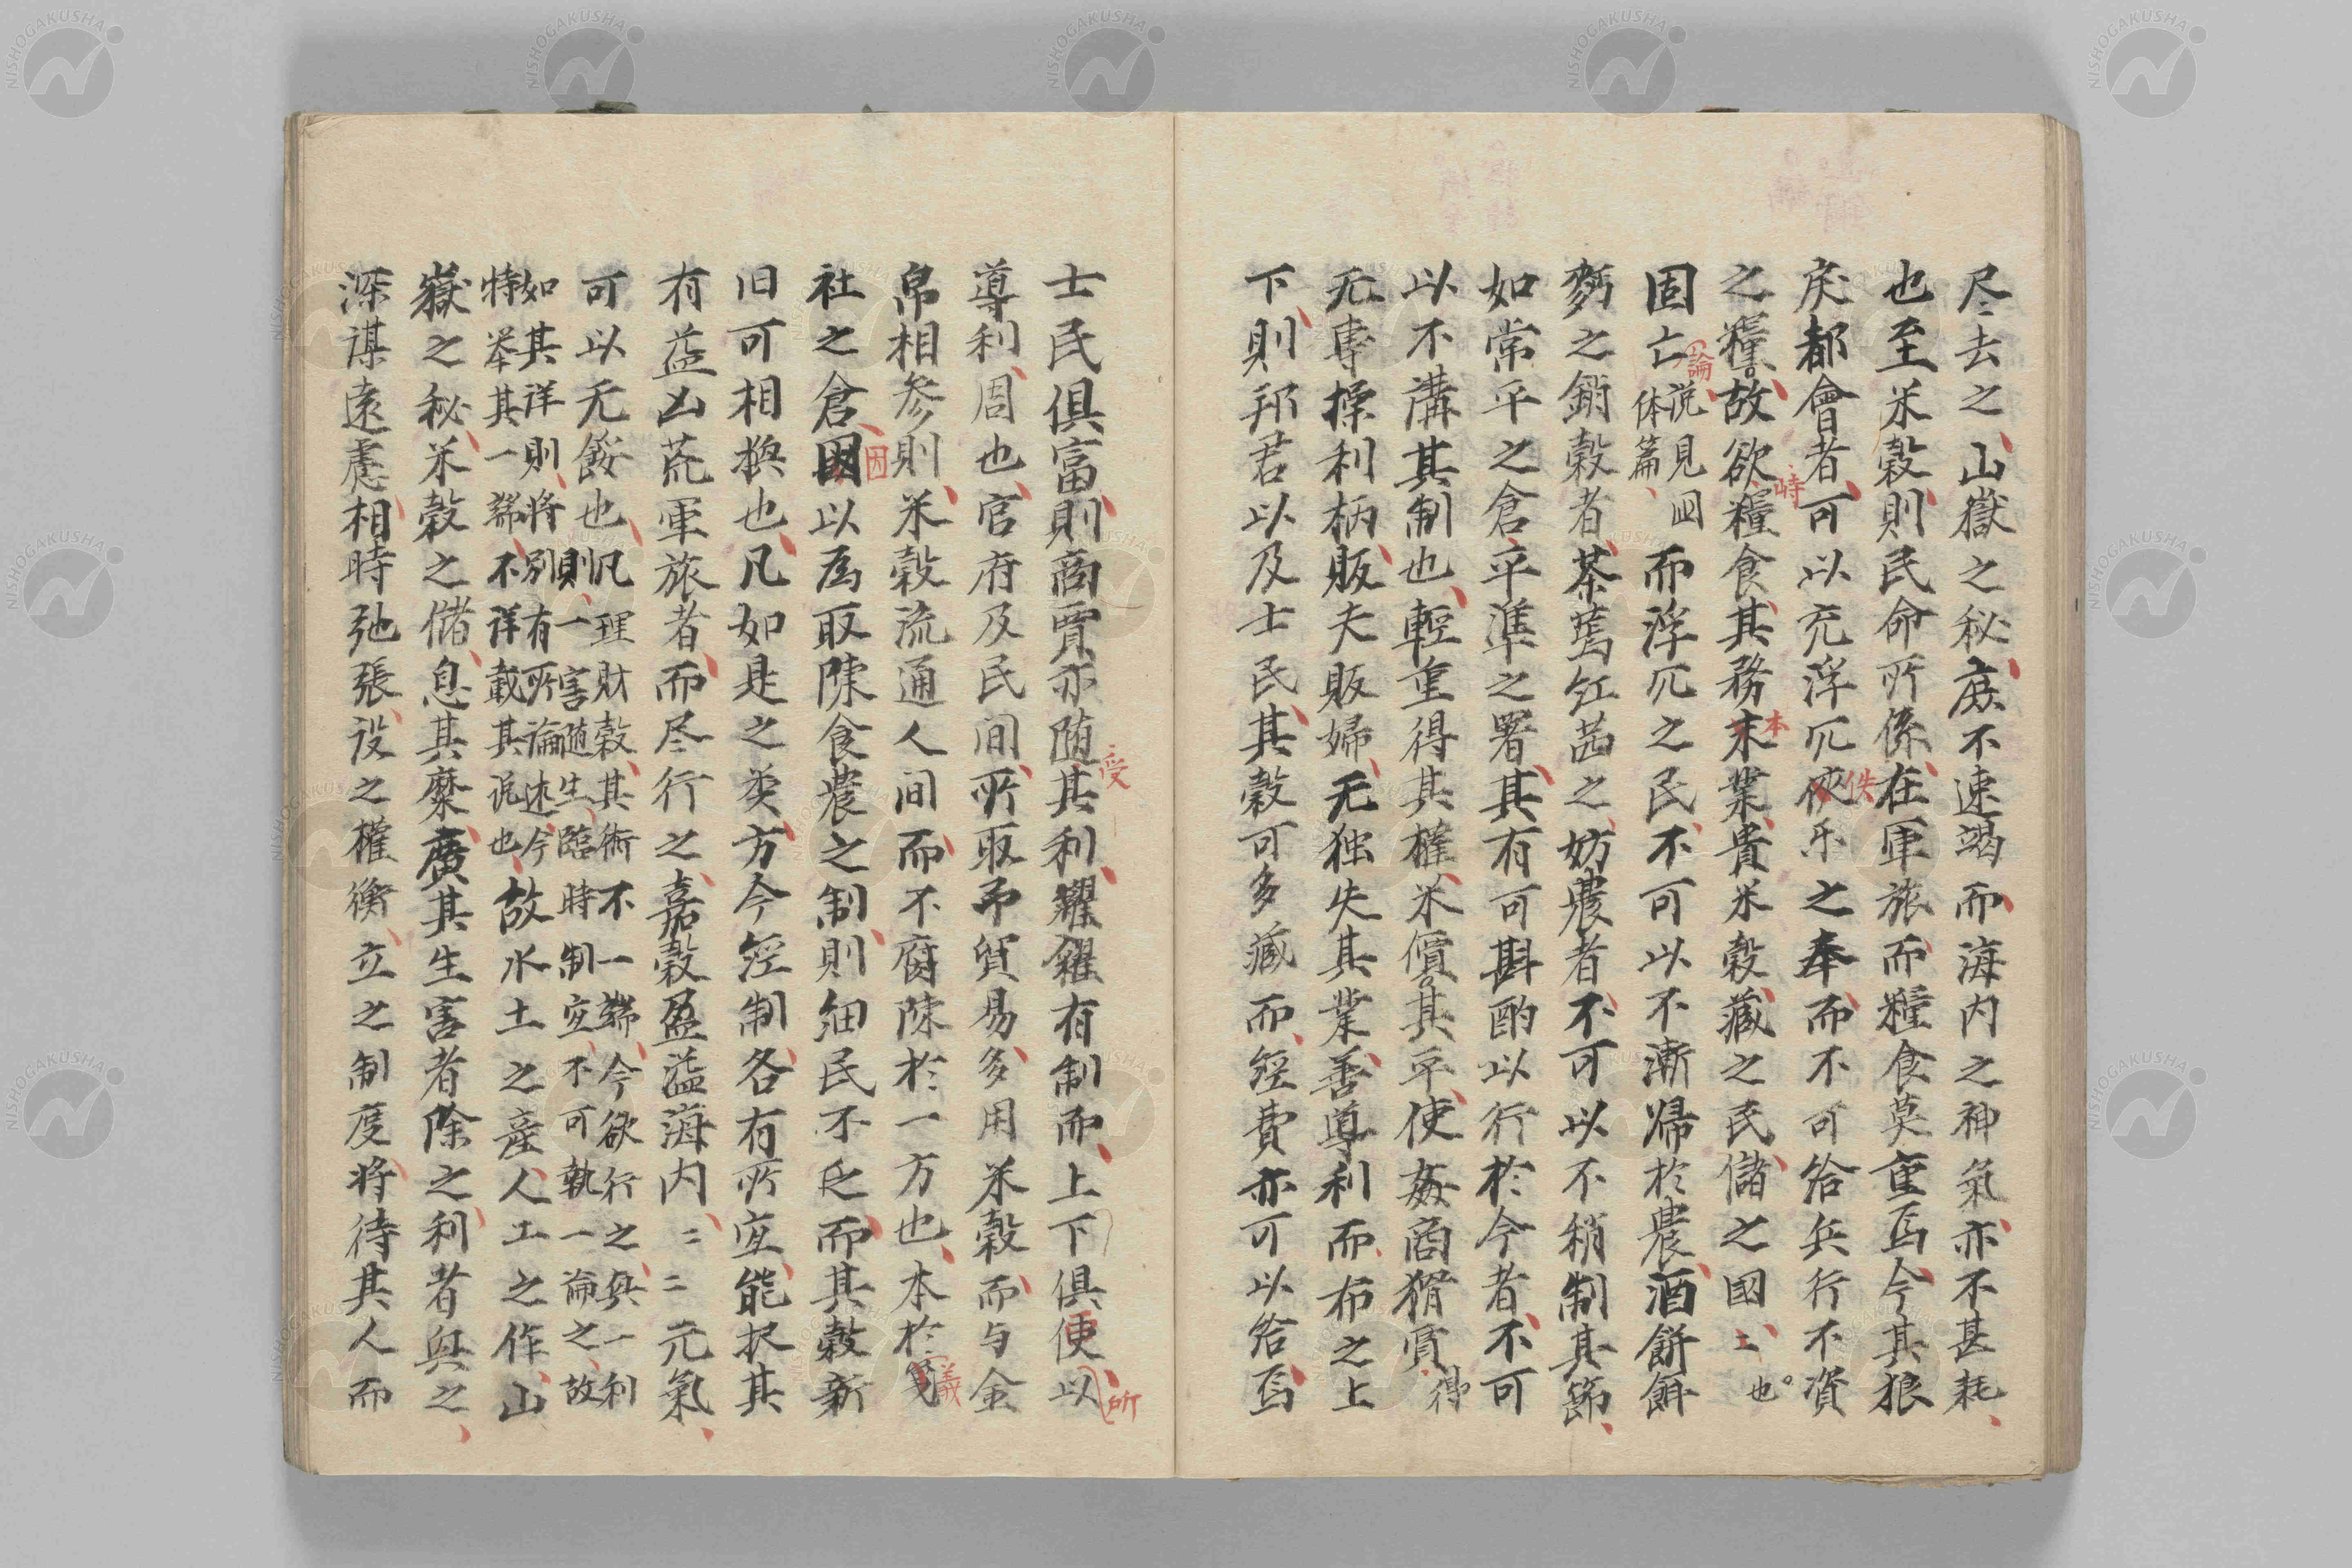 尽去之山嶽之秘庪不速竭而海内之神氣亦不甚耗
也至米穀則民命所係在軍旅而糧食莫重焉今其狼
戻都會者可以充浮冗俠乐之奉而不可給兵行不資
佚
之糧故欲糧食其務末業貴米穀藏之民儲之國〻也
時
本
固亡説見国体篇而浮冗之民不可以不漸帰於農酒餅餌
論
麪之銷穀者茶蔫红茜之妨農者不可以不稍制其節
如常平之倉平準之署其有可斟酌以行於今者不可
以不溝其制也輕重得其權米價其平使姦商猾賈
得
无専操利柄販夫販婦无独失其業善導利而布之上
下則邦君以及士民其穀可多藏而経費亦可以給焉
士民俱富則商賈亦随其利糶糴有制而上下俱便以
受
所
導利周也官府及民间所取予貿易多用米穀而与金
帛相参則米穀流通人间而不腐陳於一方也本於
義
社之倉因以為取陳食農之制則细民不乏而其穀新
因
旧可相換也凡如是之类方今経制各有所宜能択其
有益凶荒軍旅者而尽行之嘉穀盈溢海内〻〻元氣
可以无餒也凡理財穀其術不一端今欲行之興一利
則一害随生臨時制宜不可執一論之故
如其詳則将別有所論述今
特举其一端不詳載其说也故水土之産人工之作山
嶽之秘米穀之儲息其糜廣其生害者除之利者興之
深謀遠慮相時弛張设之權衡立之制度将待其人而